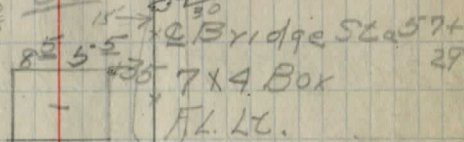 15 30
℄ Bridge Sta 57+
29
8 5 5 5 +35 7 X 4 Box
FL. Lt.